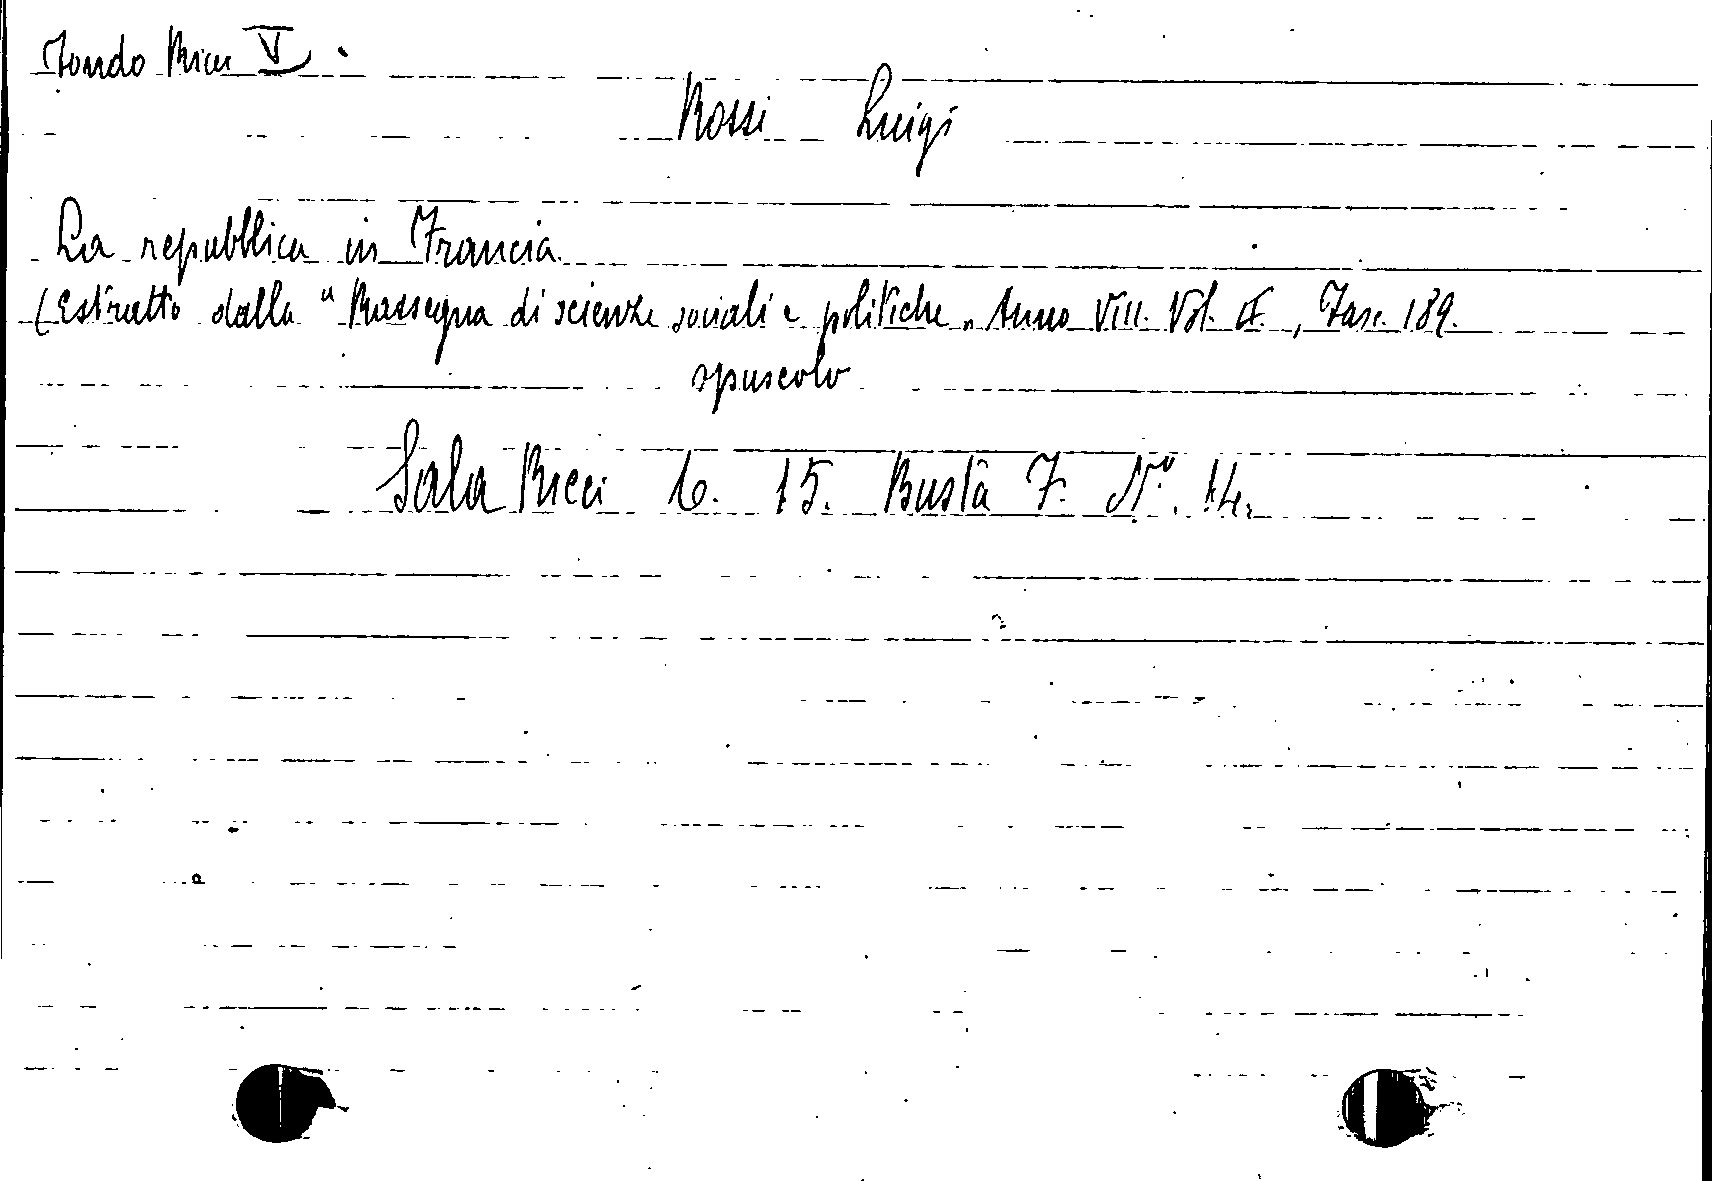 Fondo Ricci V.
Rossi Luigi
La repubblica in Francia.
(Estratto dalla "Rassegna di scienze sociali e politiche„ Anno VIII. Vol. II., Fasc. 189.
opuscolo
Sala Ricci 6. 15. Busta 7. N.º 14.